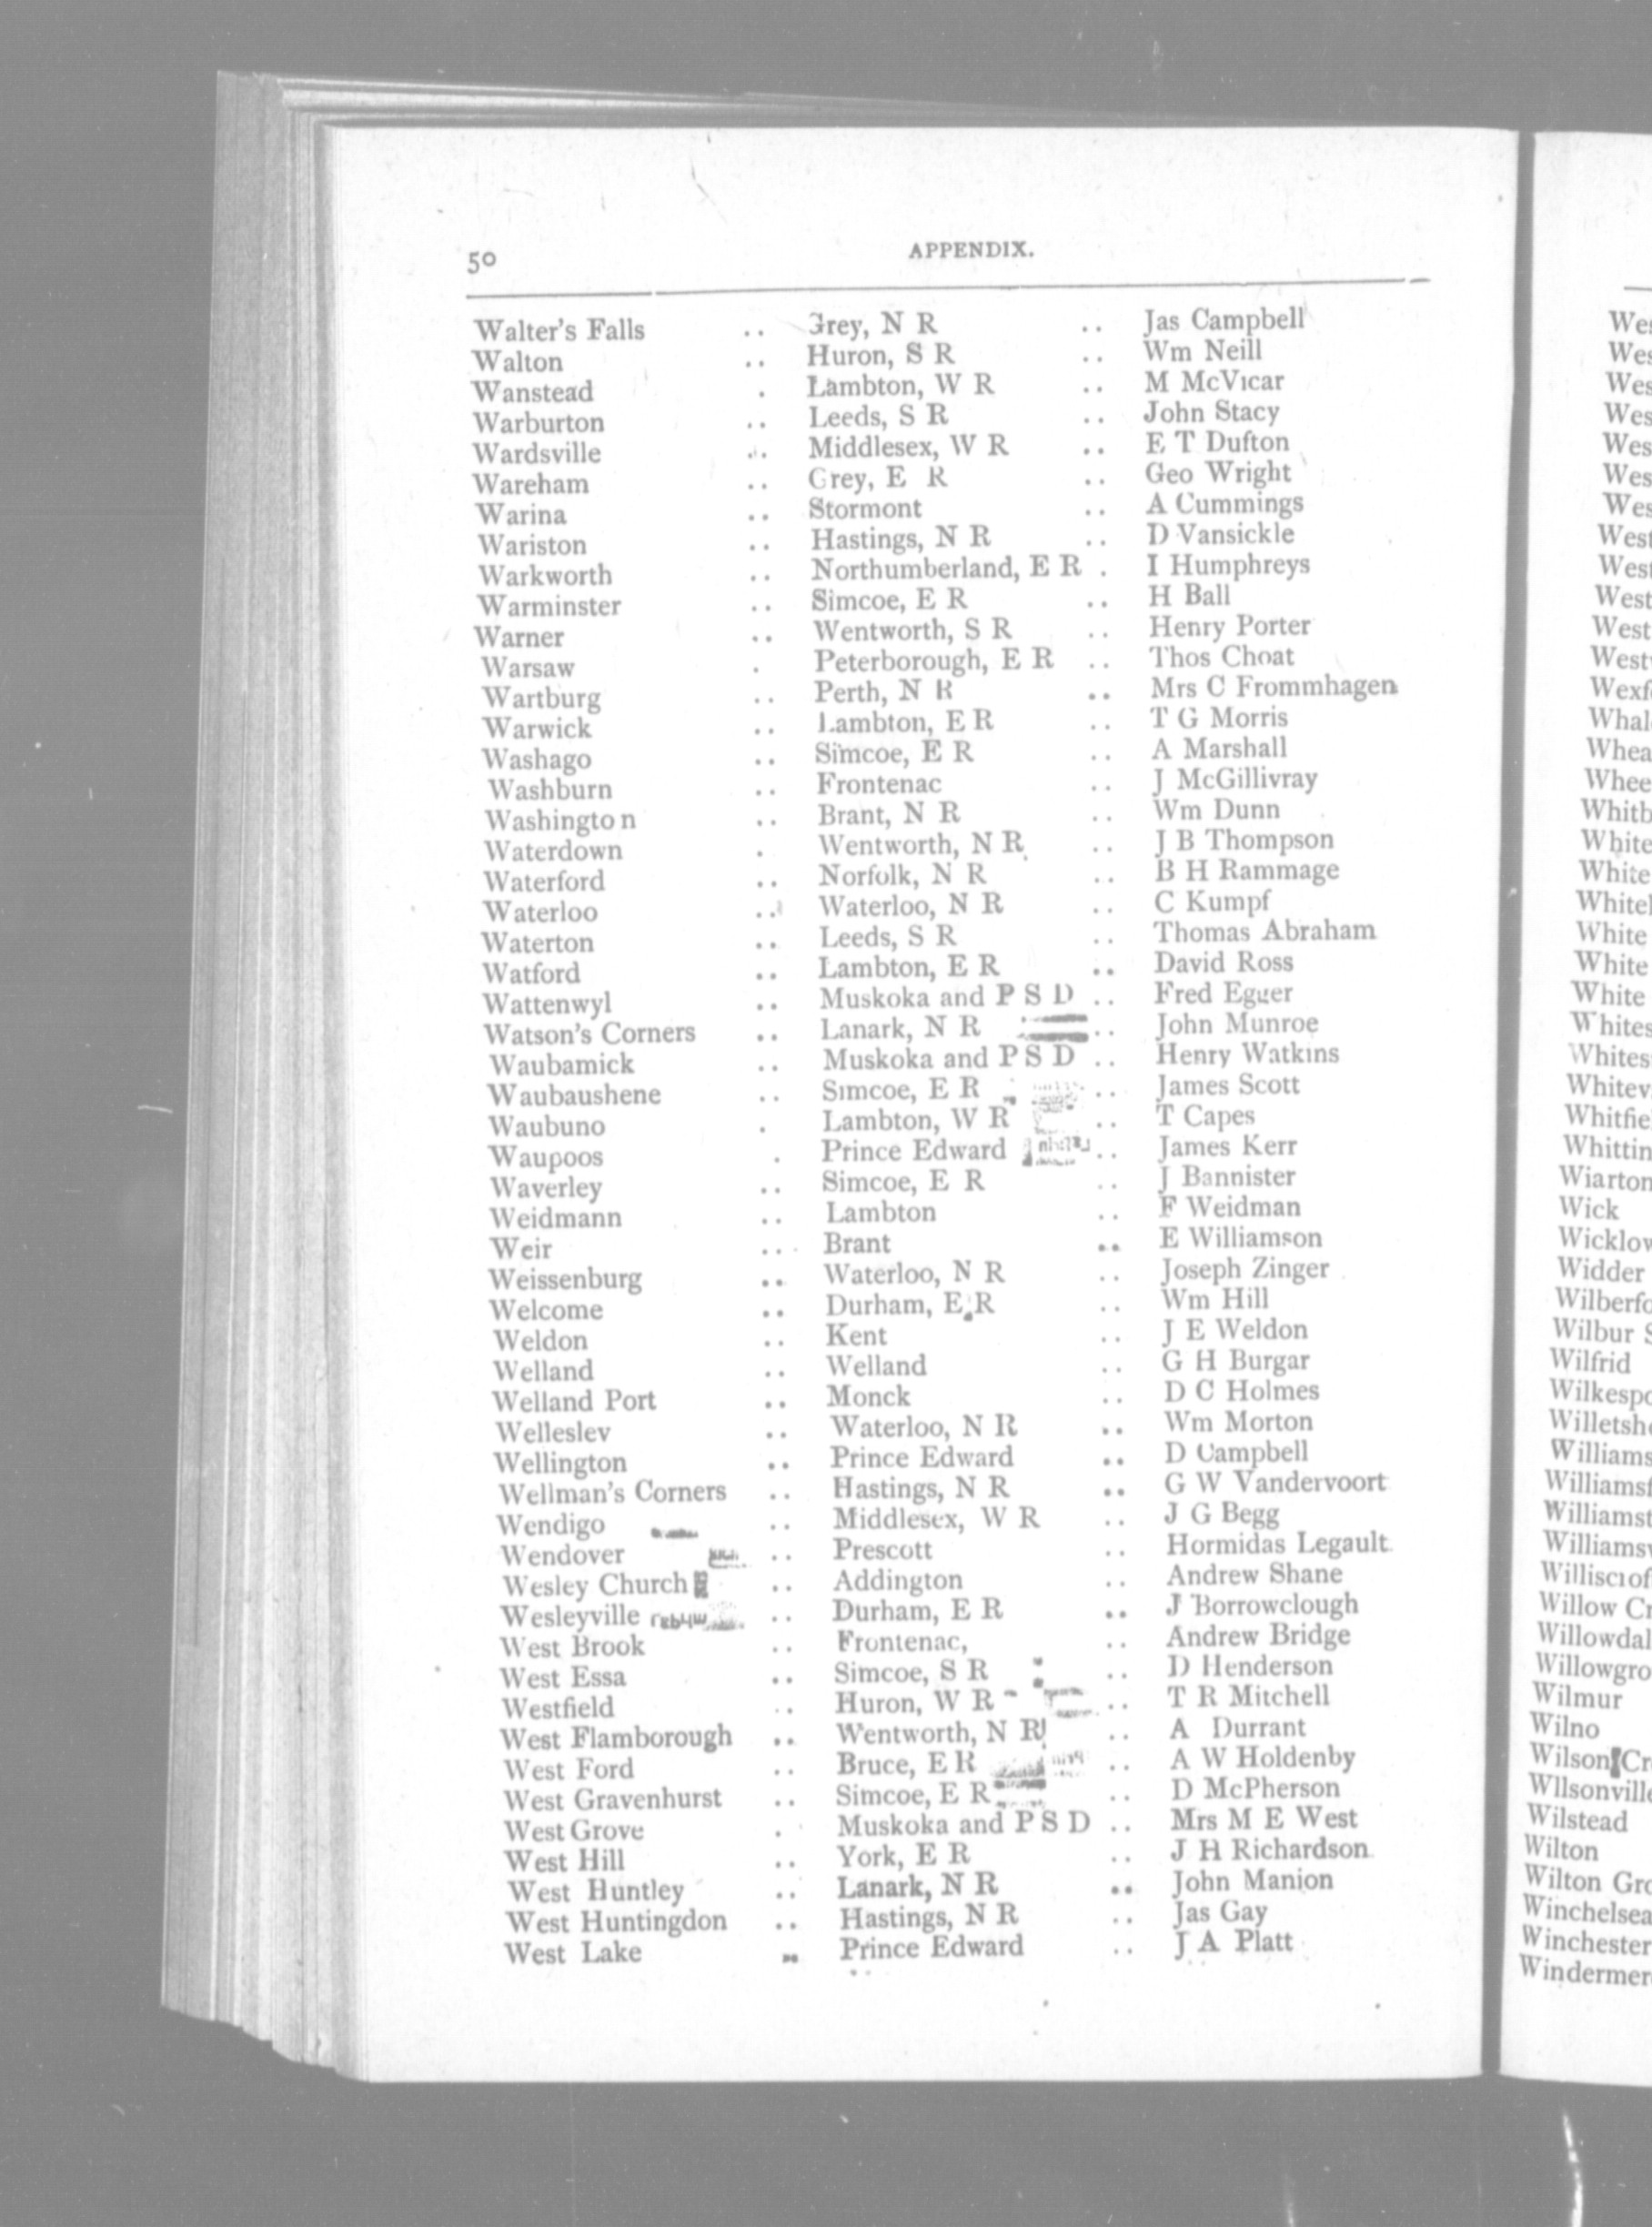 50 APPENDIX.
Walter's Falls .. Grey, N R .. Jas Campbell
Walton .. Huron, S R .. Wm Neill
Wanstead . Lambton, W R .. M McVicar
Warburton .. Leeds, S R .. John Stacy
Wardsville .. Middlesex, W R .. E T Dufton
Wareham .. Grey, E R .. Geo Wright
Warina .. Stormont .. A Cummings
Wariston .. Hastings, N R .. D Vansickle
Warkworth .. Northumberland, E R . I Humphreys
Warminster .. Simcoe, E R .. H Ball
Warner .. Wentworth, S R .. Henry Porter
Warsaw . Peterborough, E R .. Thos Choat
Wartburg .. Perth, N R .. Mrs C Frommhagen
Warwick .. Lambton, E R .. T G Morris
Washago .. Simcoe, E R .. A Marshall
Washburn .. Frontenac .. J McGillivray
Washington .. Brant, N R .. Wm Dunn
Waterdown . Wentworth, N R .. J B Thompson
Waterford .. Norfolk, N R .. B H Rammage
Waterloo .. Waterloo, N R .. C Kumpf
Waterton .. Leeds, S R .. Thomas Abraham
Watford .. Lambton, E R .. David Ross
Wattenwyl .. Muskoka and P S D .. Fred Egger
Watson's Corners .. Lanark, N R .. John Munroe
Waubamick .. Muskoka and P S D .. Henry Watkins
Waubaushene .. Simcoe, E R .. James Scott
Waubuno . Lambton, W R .. T Capes
Waupoos . Prince Edward .. James Kerr
Waverley .. Simcoe, E R .. J Bannister
Weidmann .. Lambton .. F Weidman
Weir .. Brant .. E Williamson
Weissenburg .. Waterloo, N R .. Joseph Zinger
Welcome .. Durham, E R .. Wm Hill
Weldon .. Kent .. J E Weldon
Welland .. Welland .. G H Burgar
Welland Port .. Monck .. D C Holmes
Welleslev .. Waterloo, N R .. Wm Morton
Wellington .. Prince Edward .. D Campbell
Wellman's Corners .. Hastings, N R .. G W Vandervoort
Wendigo .. Middlesex, W R .. J G Begg
Wendover .. Prescott .. Hormidas Legault
Wesley Church .. Addington .. Andrew Shane
Wesleyville .. Durham, E R .. J Borrowclough
West Brook .. Frontenac, .. Andrew Bridge
West Essa .. Simcoe, S R .. D Henderson
Westfield .. Huron, W R .. T R Mitchell
West Flamborough .. Wentworth, N R .. A Durrant
West Ford .. Bruce, E R .. A W Holdenby
West Gravenhurst .. Simcoe, E R .. D McPherson
West Grove . Muskoka and P S D .. Mrs M E West
West Hill .. York, E R .. J H Richardson
West Huntley .. Lanark, N R .. John Manion
West Huntingdon .. Hastings, N R .. Jas Gay
West Lake .. Prince Edward .. J A Platt
Wick
Widder
Wilfrid
Wilmur
Wilno
Wllsonville
Wilstead
Wilton